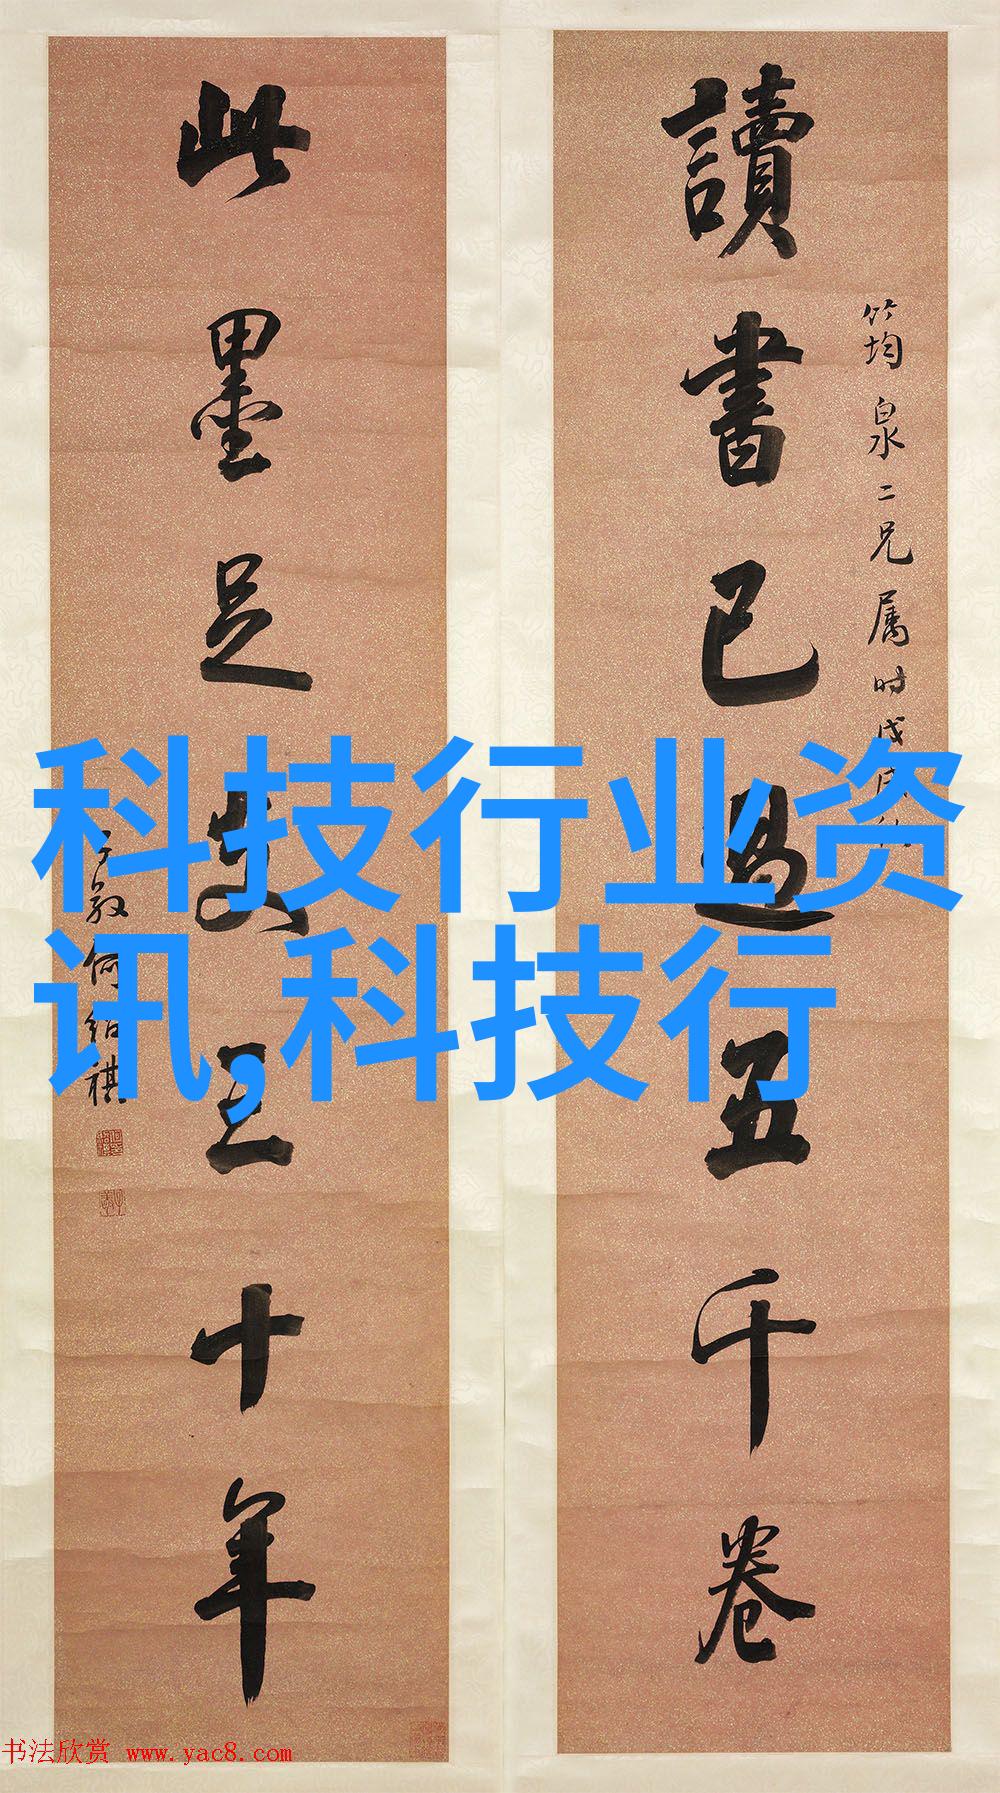 筠泉二兄属时戊
讀書已過五千卷
此墨足支三十年
敬何紹祺
科技行业资
讯,科技行
书法欣赏 www.yac8.com